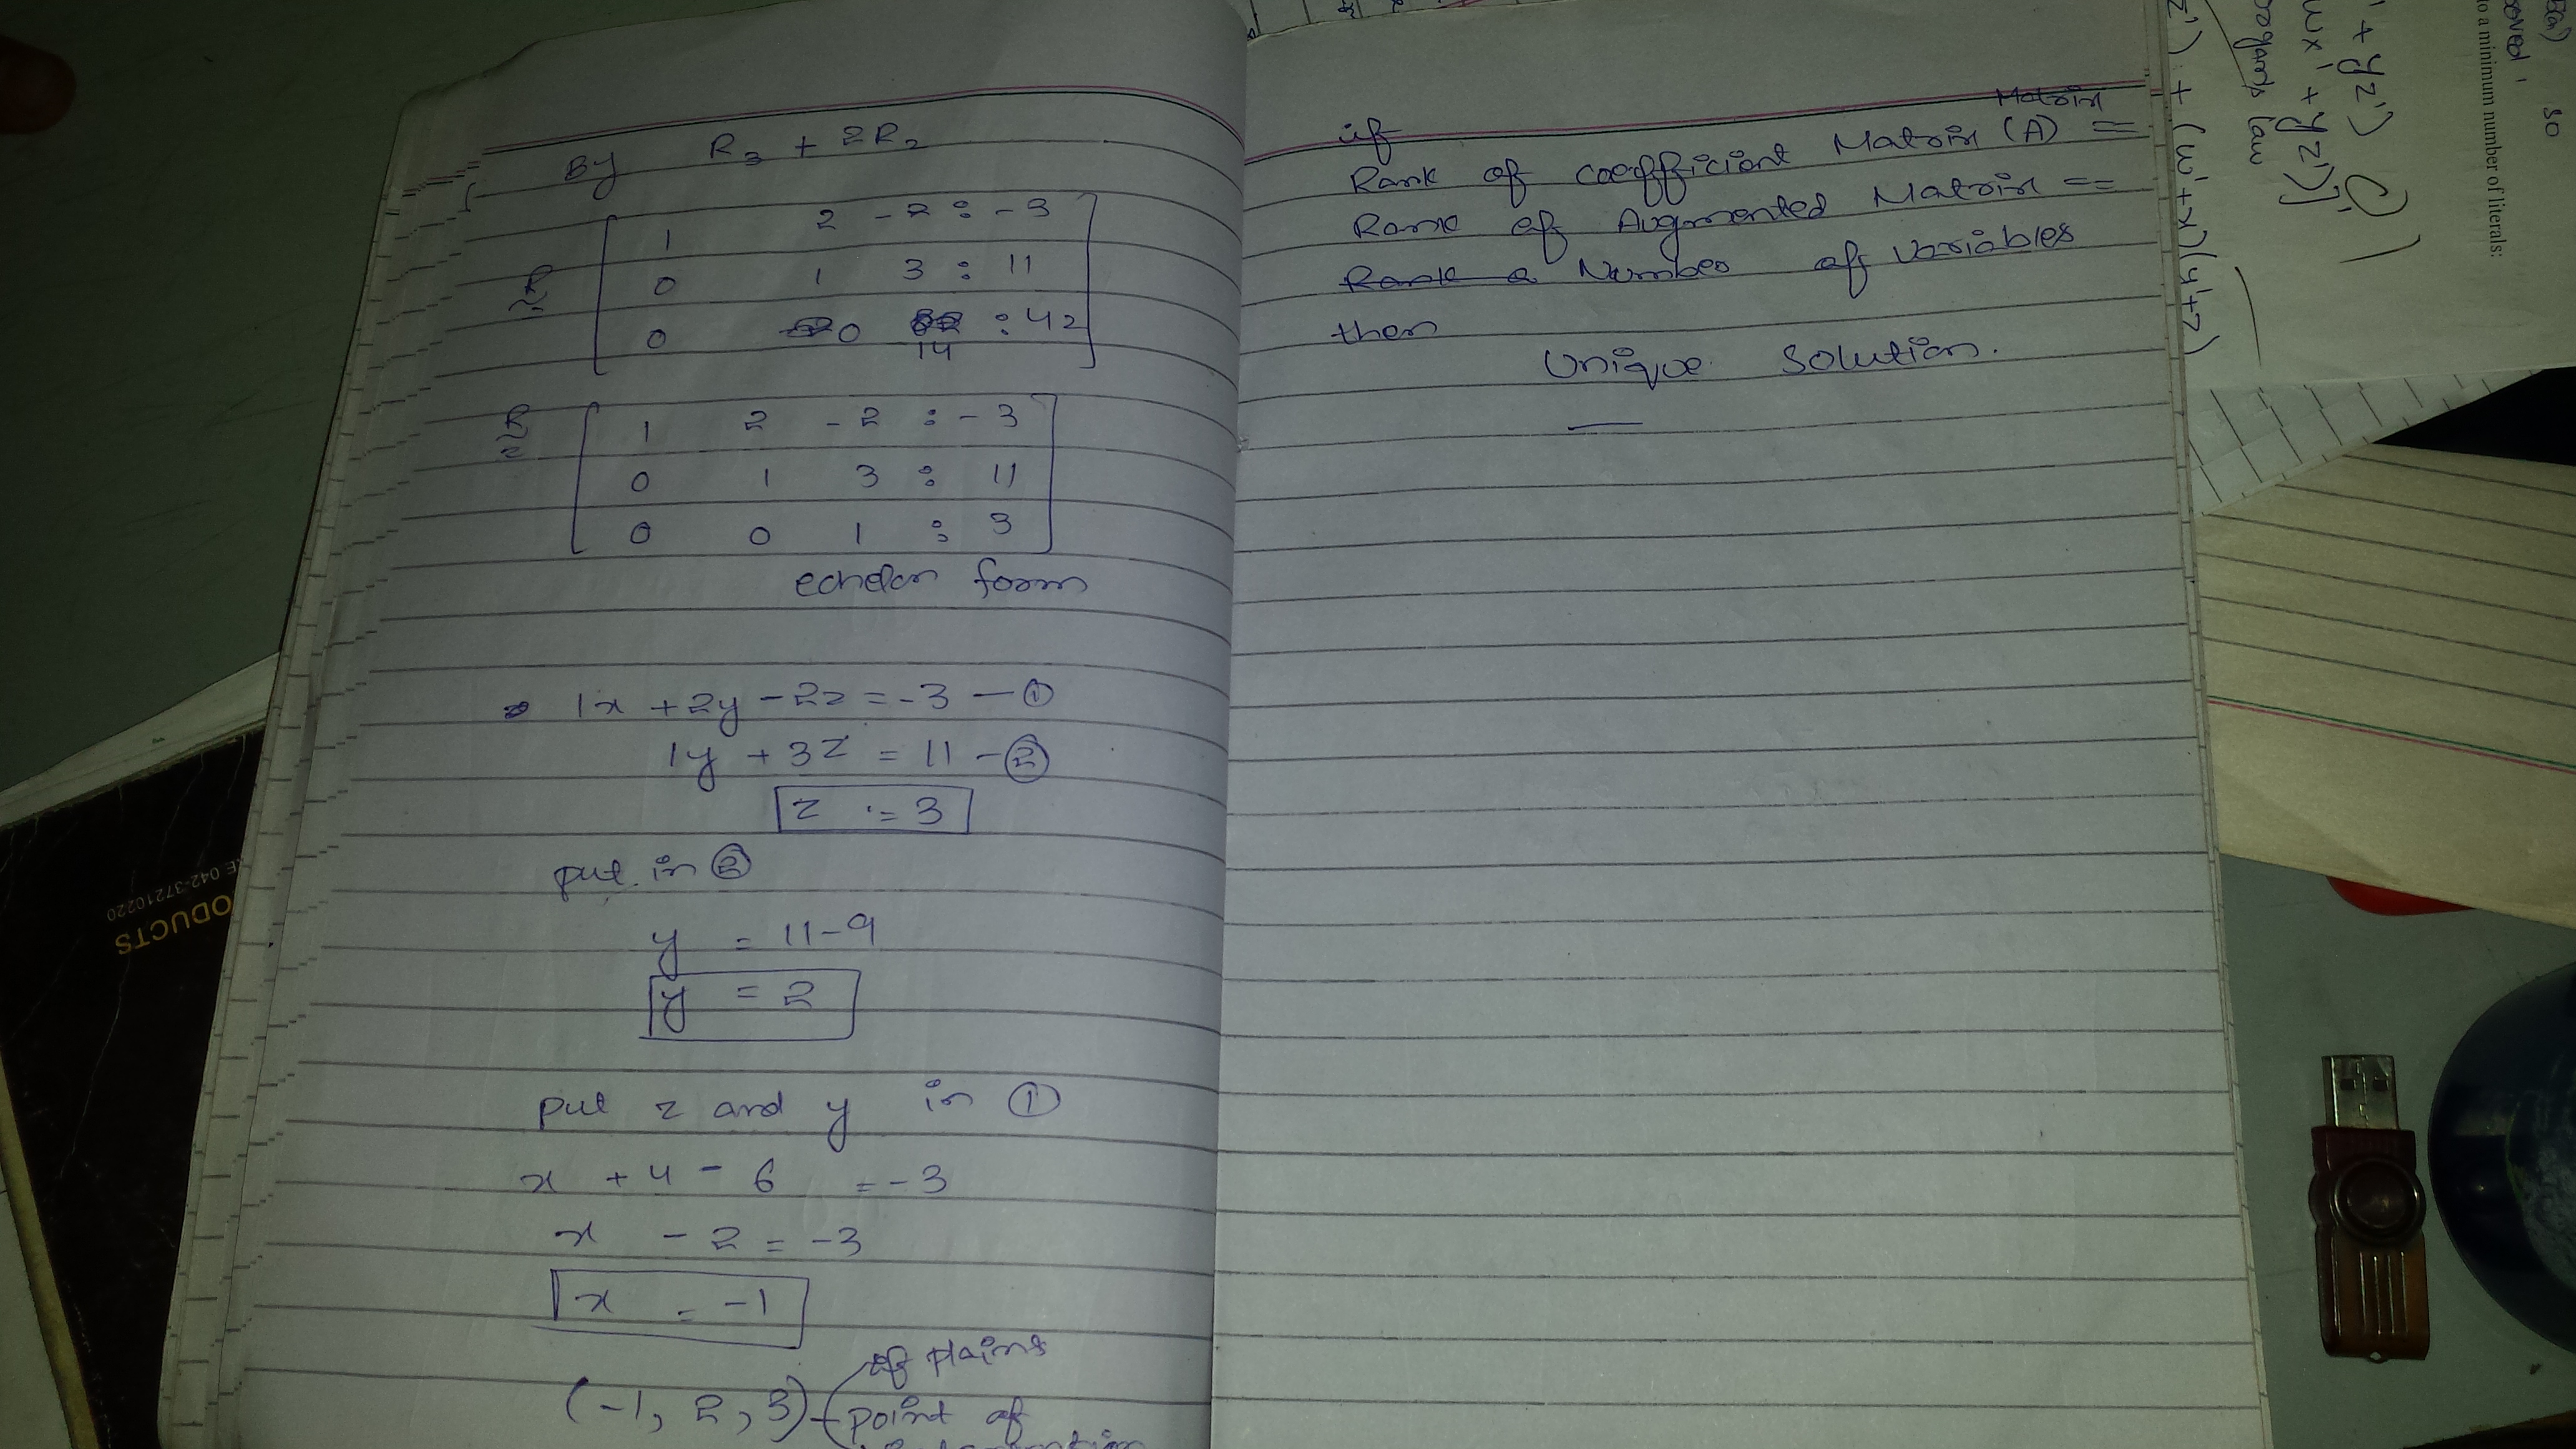 By R3 + 2R2
R [ 1 2 -2 : -3
0 1 3 : 11
0 0 14 : 42 ]
R [ 1 2 -2 : -3
0 1 3 : 11
0 0 1 : 3 ]
echelon form
1x + 2y - 2z = -3 — ①
1y + 3z = 11 - ②
z = 3
put in ②
y = 11-9
y = 2
put z and y in ①
x + 4 - 6 = -3
x - 2 = -3
x = -1
of plains
(-1, 2, 3) point of
if
Matrix
Rank of coefficient Matrix (A) =
Rank of Augmented Matrix ==
Rank a Number of variables
then
Unique Solution.
' + yz')
wx' + yz')]'
z') + (w'+x)(y'+z)
law
to a minimum number of literals:
50
E 042-37210220
ODUCTS